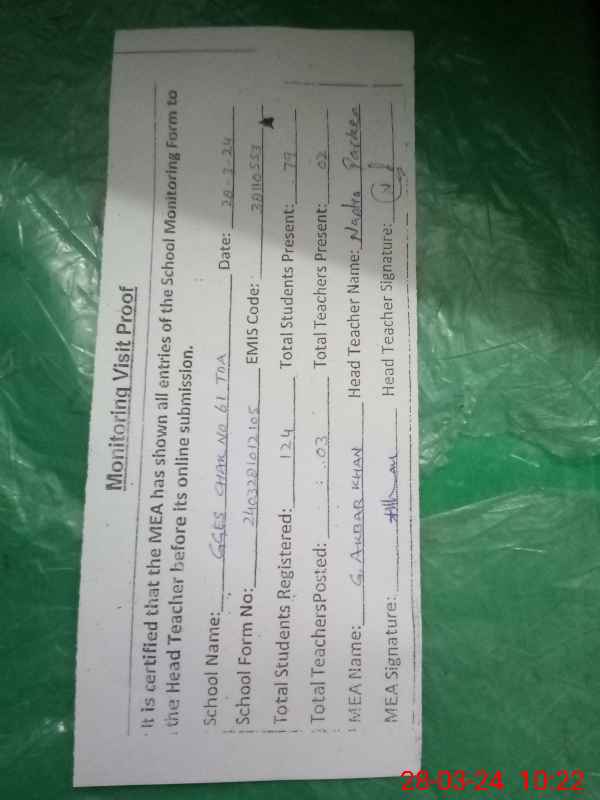 Monitoring Visit Proof
It is certified that the MEA has shown all entries of the School Monitoring Form to
the Head Teacher before its online submission.
School Name: GGES CHAK NO 61 TDA Date: 28-3-24
School Form No: 2403201012105 EMIS Code: 30110553
Total Students Registered: 124 Total Students Present: 79
Total TeachersPosted: 03 Total Teachers Present: 02
MEA Name: G. AKBAR KHAN Head Teacher Name: Nadra
MEA Signature: Head Teacher Signature:
28-03-24 10:22